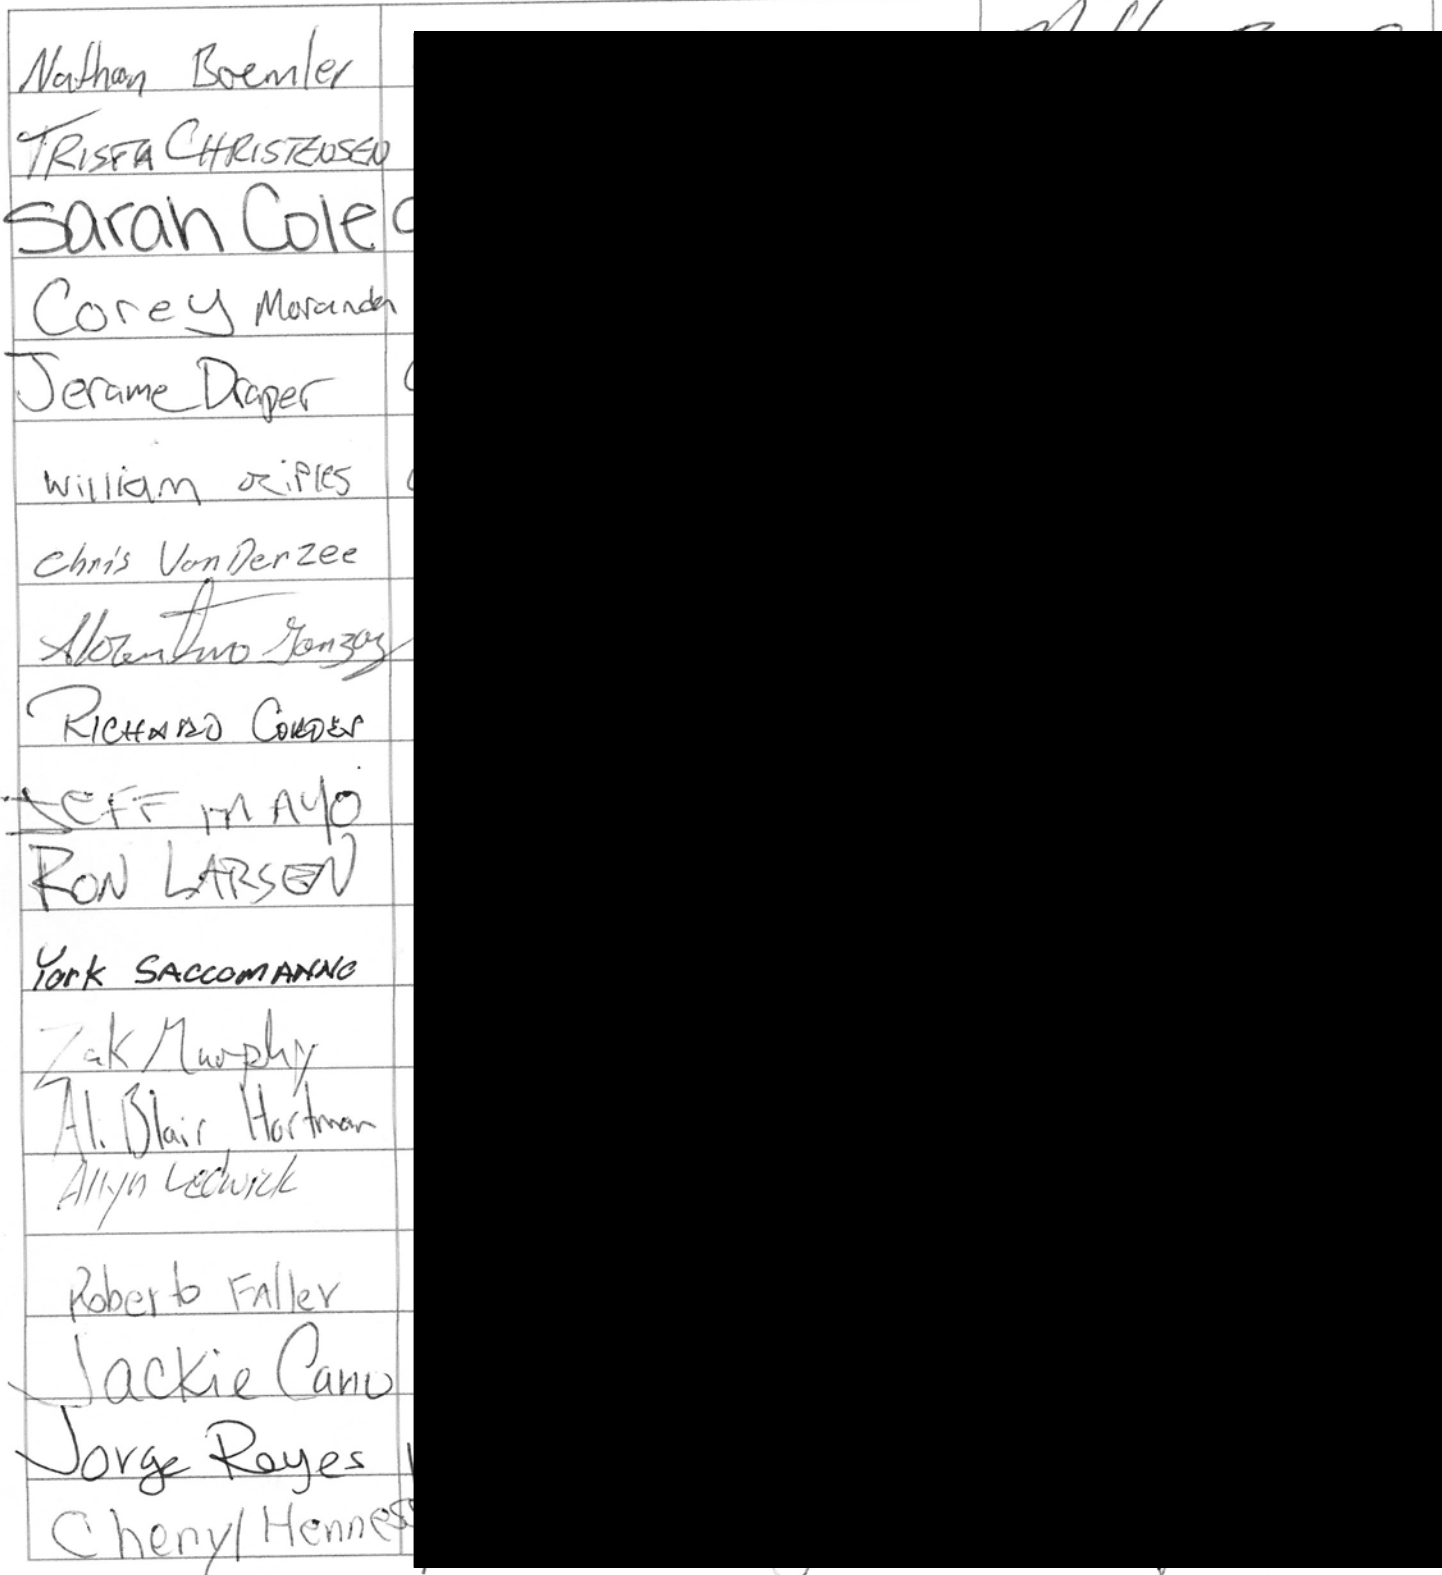 Nathan Boemler
TRISTA CHRISTENSEN
Sarah Cole
Corey
Jerame Draper
William
Chris VanDerzee
RICHARD CORDER
JEFF MAYO
RON LARSEN
York SACCOMANNO
Zak Murphy
Al. Blair Hartman
Allyn Ledwick
Roberto Faller
Jackie Cano
Jorge Reyes
Cheryl Henness